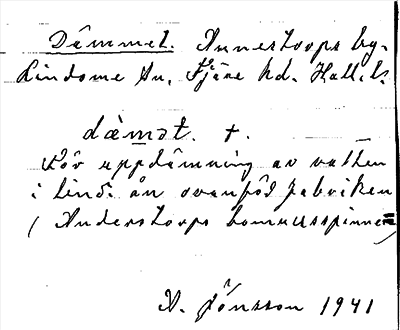 Dämmet. Annestorps by.
Lindome sn, Fjäre hd. Hall. l.
dämət. +.
För uppdämning av vatten
i Lind. ån ovanför fabriken
(Anderstorps bomullsspinneri)
N. Jönsson 1941